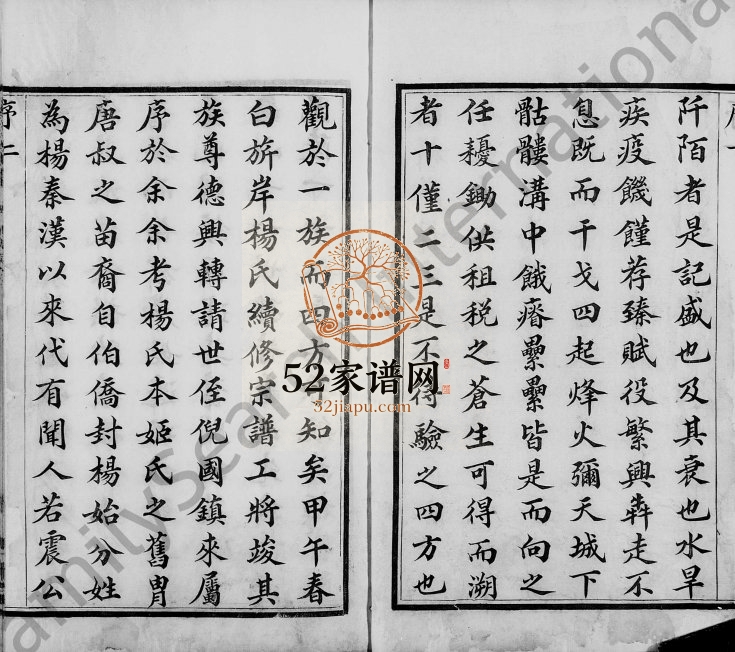 阡陌者是記盛也及其衰也水旱
疾疫饑饉荐臻賦役繁興犇走不
息既而干戈四起烽火彌天城下
骷髏溝中餓瘠纍纍皆是而向之
任耰鋤供租税之蒼生可得而溯
者十僅二三是不待驗之四方也
觀於一族而四方可知矣甲午春
白旂岸楊氏續修宗譜工將竣其
族尊德興轉請世侄倪國鎮來屬
序於余余考楊氏本姬氏之舊胄
唐叔之苗裔自伯僑封楊始分姓
為楊秦漢以來代有聞人若震公
序二
52家谱网
52jiapu.com
FamilySearch International